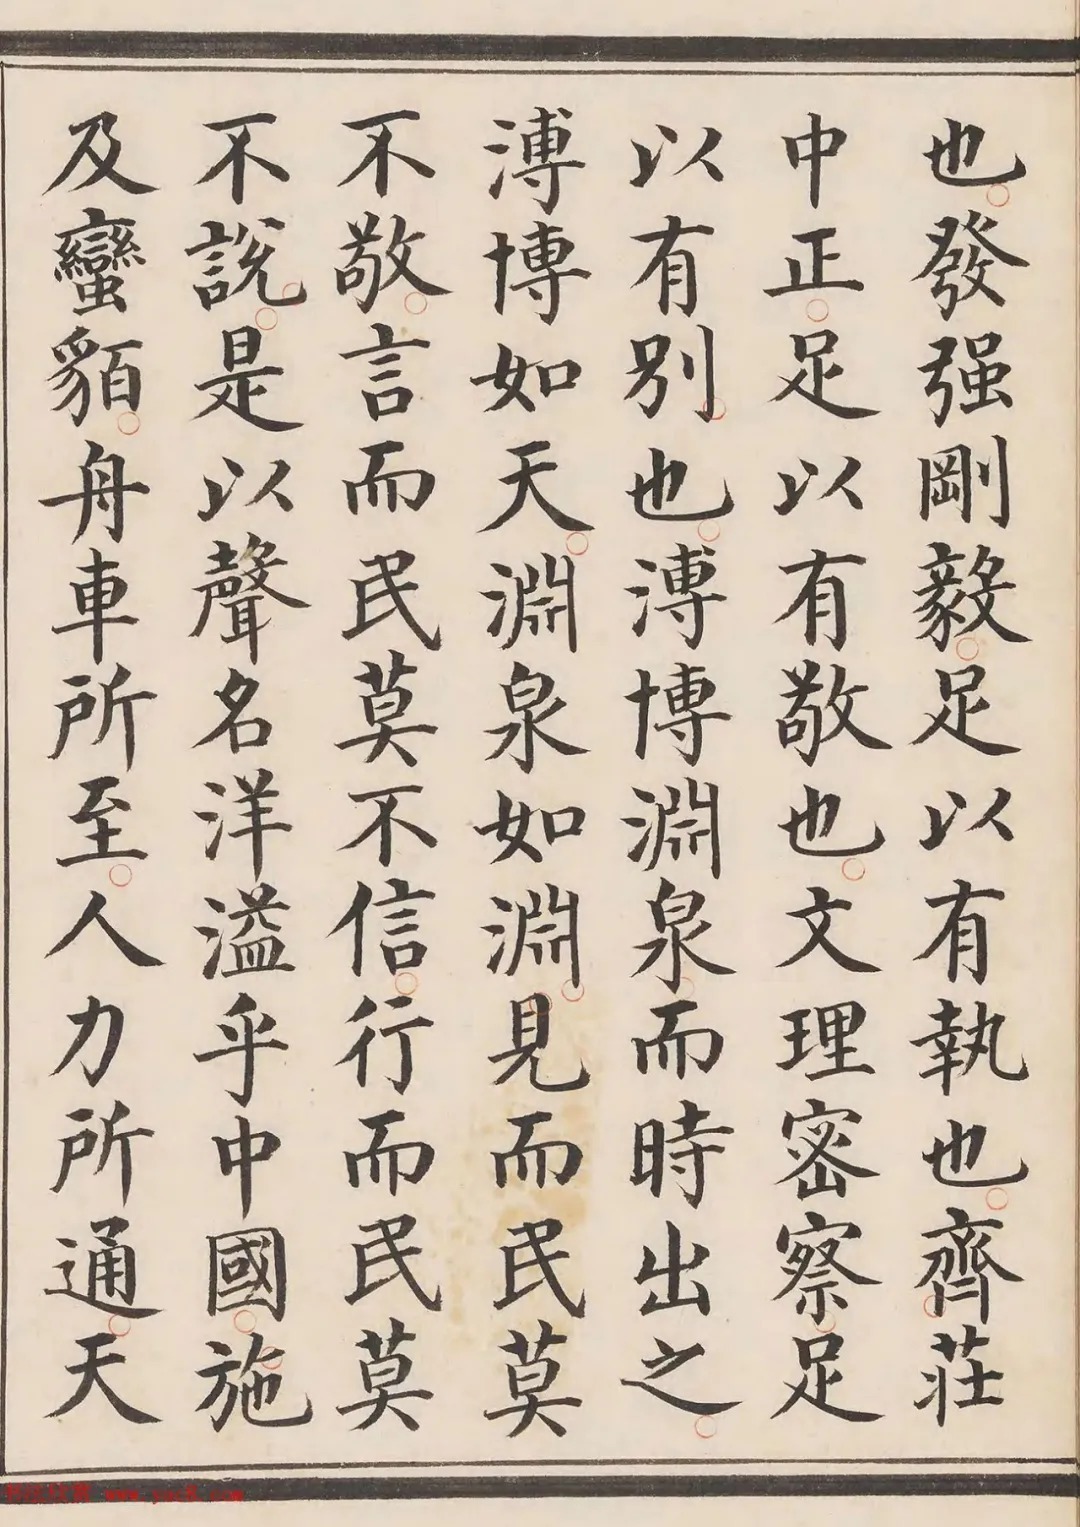 也發强剛毅足以有執也齊荘
中正足以有敬也文理密察足
以有別也溥博淵泉而時出之
溥博如天淵泉如淵見而民莫
不敬言而民莫不信行而民莫
不說是以聲名洋溢乎中國施
及蠻貊舟車所至人力所通天